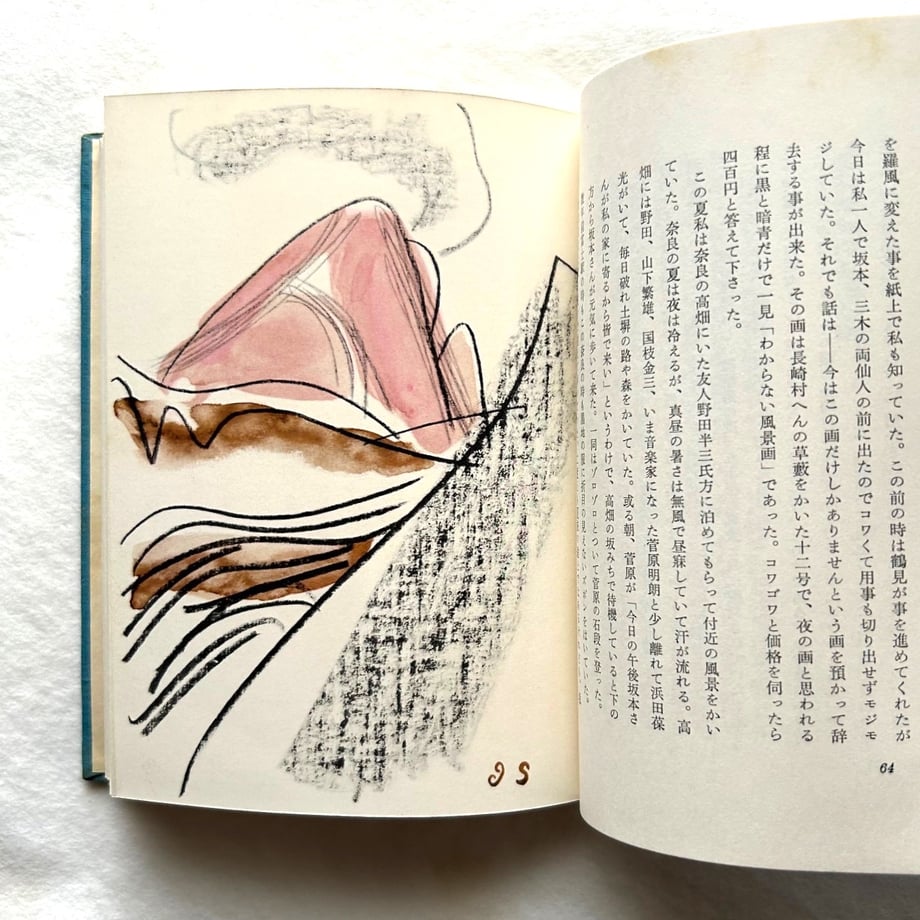 を羅風に変えた事を紙上で私も知っていた。この前の時は鶴見が事を進めてくれたが
今日は私一人で坂本、三木の両仙人の前に出たのでコワくて用事も切り出せずモジモ
ジしていた。それでも話は――今はこの画だけしかありませんという画を預かって辞
去する事が出来た。その画は長崎村へんの草藪をかいた十二号で、夜の画と思われる
程に黒と暗青だけで一見「わからない風景画」であった。コワゴワと価格を伺ったら
四百円と答えて下さった。
この夏私は奈良の高畑にいた友人野田半三氏方に泊めてもらって付近の風景をかい
ていた。奈良の夏は夜は冷えるが、真昼の暑さは無風で昼寐していて汗が流れる。高
畑には野田、山下繁雄、国枝金三、いま音楽家になった菅原明朗と少し離れて浜田葆
光がいて、毎日破れ土塀の路や森をかいていた。或る朝、菅原が「今日の午後坂本さ
んが私の家に寄るから皆で来い」というわけで、高畑の坂みちで待機していると下の
方から坂本さんが元気に歩いて来た。一同はゾロゾロとついて菅原の石段を登った。
64
JS